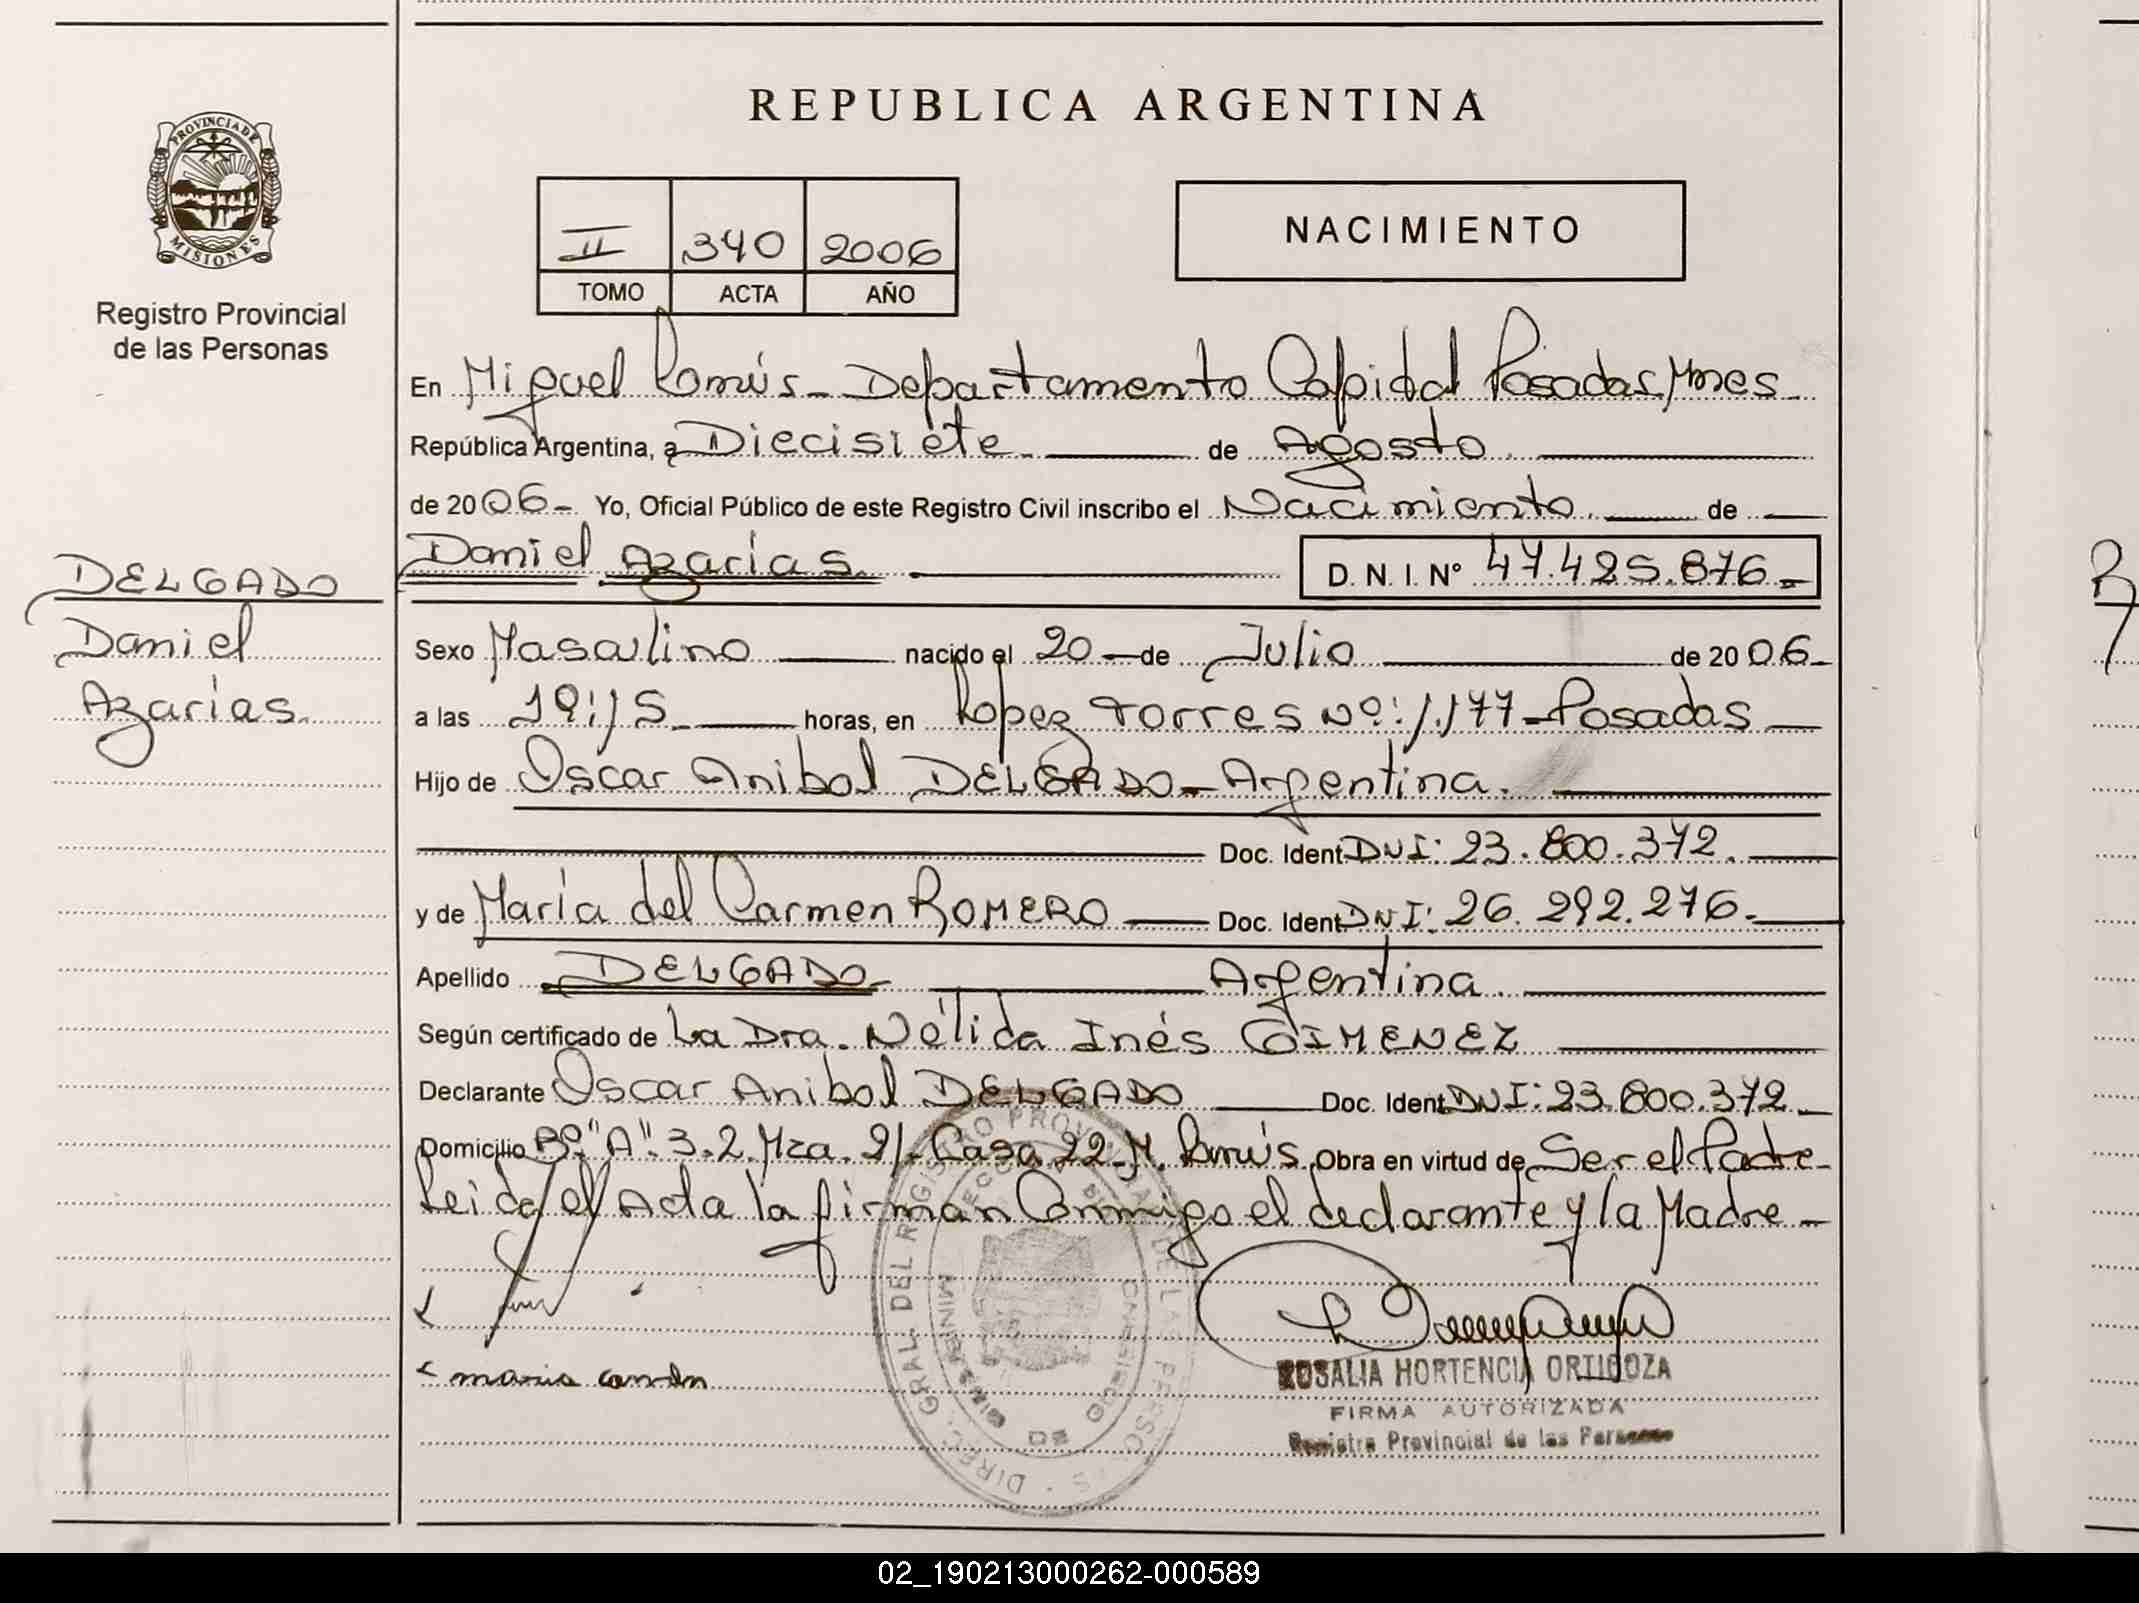 REPUBLICA ARGENTINA
PROVINCIA DE
MISIONES
Registro Provincial
de las Personas
II 340 2006
TOMO ACTA AÑO
NACIMIENTO
En Miguel Lanús - Departamento Capital Posadas, Mnes
República Argentina, a Diecisiete de Agosto
de 2006 - Yo, Oficial Público de este Registro Civil inscribo el Nacimiento de
DELGADO
Daniel
Azarías
Daniel Azarías D. N. I. Nº 47.425.876.-
Sexo Masculino nacido el 20 de Julio de 2006-
a las 19:15 horas, en López Torres Nº: 1.177 - Posadas
Hijo de Oscar Anibal DELGADO - Argentina.
Doc. Ident DNI: 23.800.372.
y de María del Carmen ROMERO Doc. Ident DNI: 26.292.276.
Apellido DELGADO Argentina.
Según certificado de La Dra. Nélida Inés GIMENEZ
Declarante Oscar Anibal DELGADO Doc. Ident DNI: 23.800.372
Domicilio Bº "A" 3.2. Mza. 21 - Casa 22 - M. Lanús Obra en virtud de Ser el Padre -
Leida el Acta la firman Conmigo el declarante y la Madre -
maria carmen
DIREC. GRAL. DEL REGISTRO PROVINCIAL DE LAS PERSONAS
ROSALIA HORTENCIA ORTIGOZA
FIRMA AUTORIZADA
Registro Provincial de las Personas
02_190213000262-000589